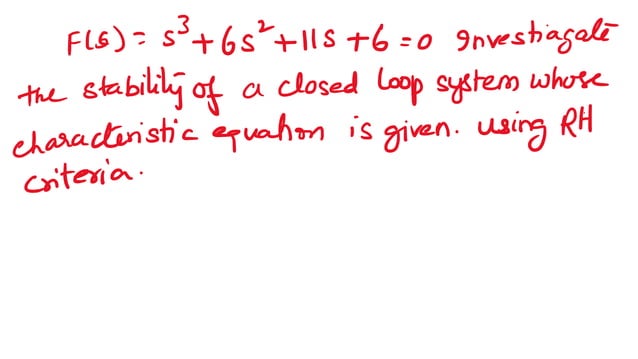 F(s) = s³ + 6s² + 11s + 6 = 0 Investiagate
the stability of a closed loop system whose
characteristic equation is given. using RH
criteria.